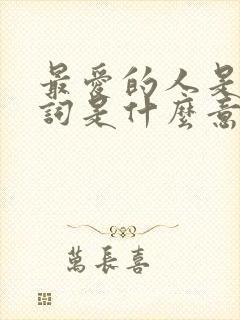 最愛的人是
詞是什麼意
萬長喜